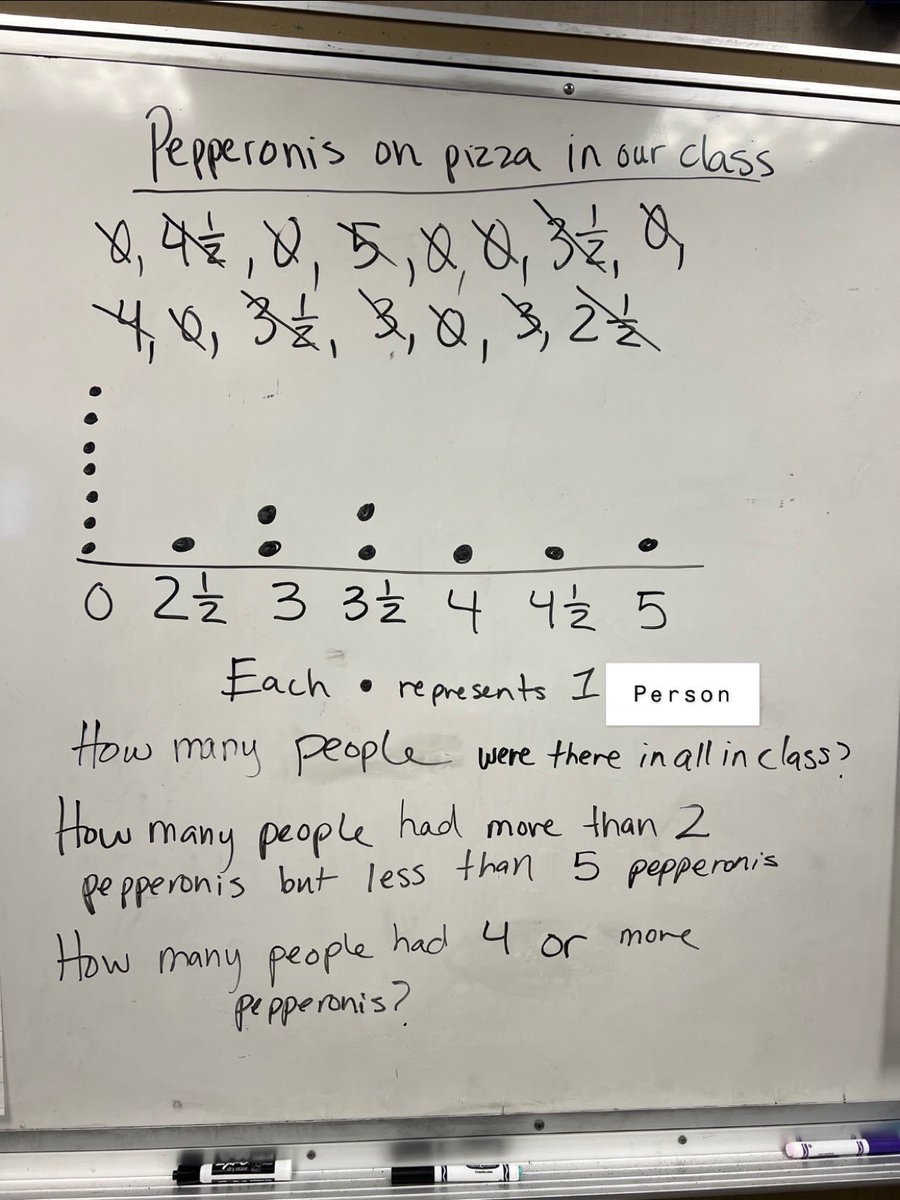 Pepperonis on pizza in our class
0, 4 1/2, 0, 5, 0, 0, 3 1/2, 0,
4, 0, 3 1/2, 3, 0, 3, 2 1/2
0 2 1/2 3 3 1/2 4 4 1/2 5
Each • represents 1 Person
How many people were there in all in class?
How many people had more than 2
pepperonis but less than 5 pepperonis
How many people had 4 or more
pepperonis?